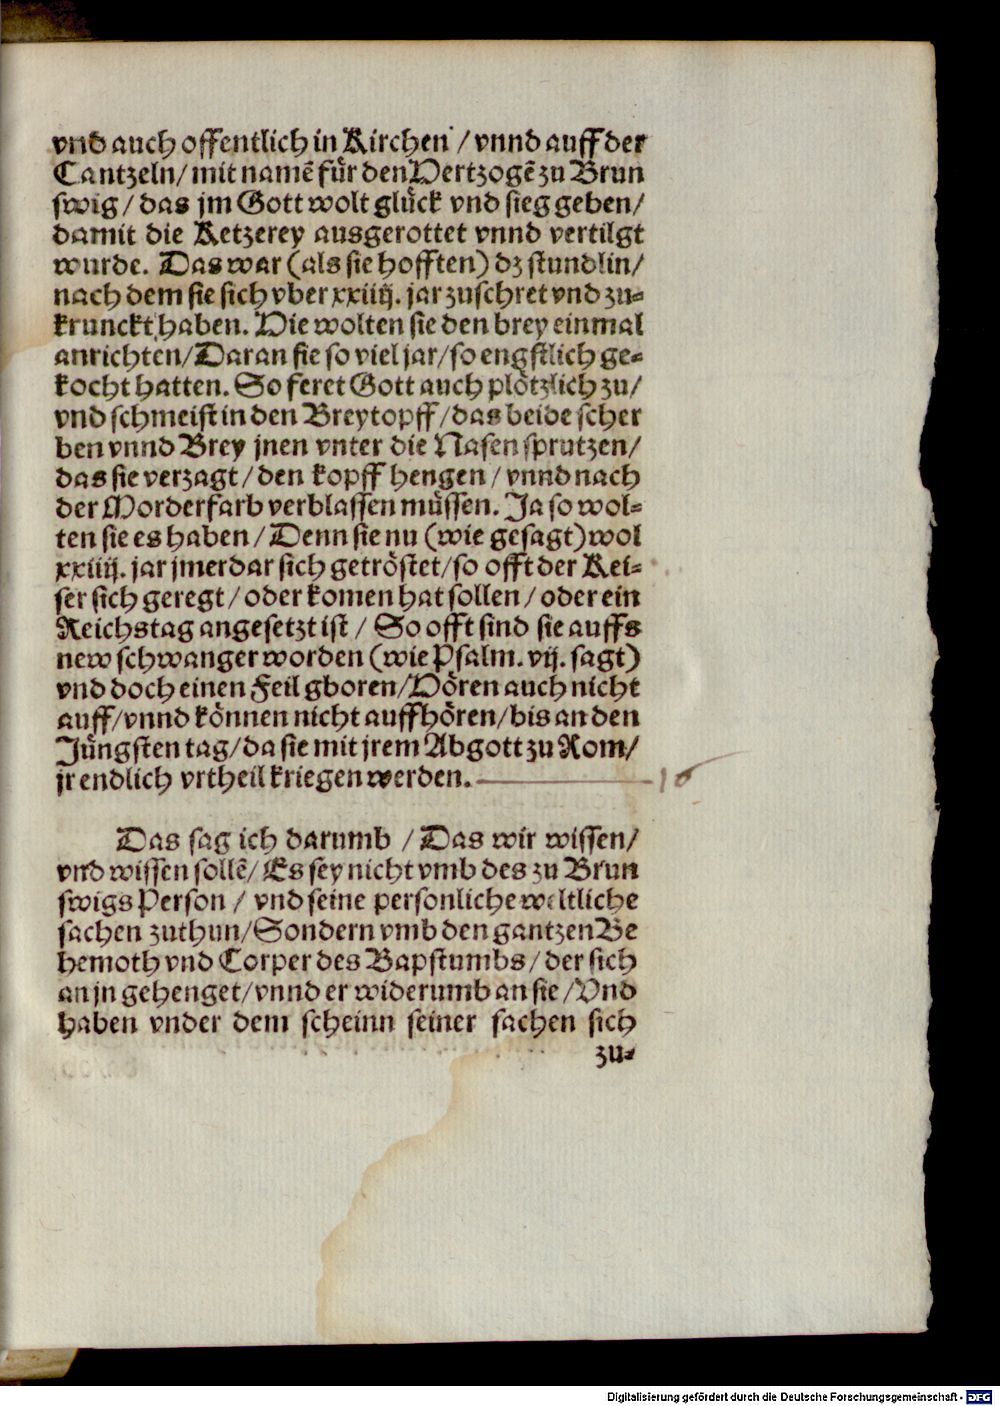 vnd auch offentlich in Kirchen / vnnd auff der
Cantzeln / mit namẽ für den Hertzogẽ zu Brun
swig / das jm Gott wolt glück vnd sieg geben /
damit die Ketzerey ausgerottet vnnd vertilgt
wurde. Das war (als sie hofften) dz stundlin /
nach dem sie sich vber xxiiij. jar zuschret vnd zu-
krunckt haben. Hie wolten sie den brey einmal
anrichten / Daran sie so viel jar / so engstlich ge-
kocht hatten. So feret Gott auch plötzlich zu /
vnd schmeist in den Breytopff / das beide scher
ben vnnd Brey jnen vnter die Nasen sprutzen /
das sie verzagt / den kopff hengen / vnnd nach
der Morderfarb verblassen müssen. Ja so wol-
ten sie es haben / Denn sie nu (wie gesagt) wol
xxiiij. jar jmerdar sich getröstet / so offt der Kei-
ser sich geregt / oder komen hat sollen / oder ein
Reichstag angesetzt ist / So offt sind sie auffs
new schwanger worden (wie Psalm. vij. sagt)
vnd doch einen Feil gboren / Hören auch nicht
auff / vnnd können nicht auffhören / bis an den
Jüngsten tag / da sie mit jrem Abgott zu Rom /
jr endlich vrtheil kriegen werden. 16
Das sag ich darumb / Das wir wissen /
vnd wissen sollẽ / Es sey nicht vmb des zu Brun
swigs Person / vnd seine personliche weltliche
sachen zuthun / Sondern vmb den gantzen Be
hemoth vnd Corper des Bapstumbs / der sich
an jn gehenget / vnnd er widerumb an sie / Vnd
haben vnder dem scheinn seiner sachen sich
zu-
Digitalisierung gefördert durch die Deutsche Forschungsgemeinschaft - DFG